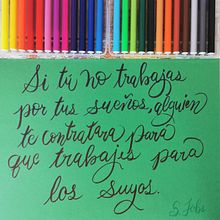 Si tú no trabajas
por tus sueños, alguien
te contratara para
que trabajes para
los suyos.
S. Jobs